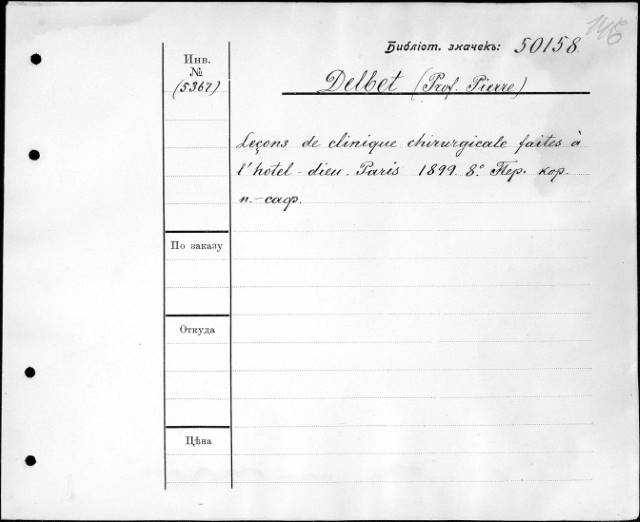 146
Библіот. значекъ: 50158
Инв.
№
(5367)
Delbet (Prof. Pierre)
Leçons de clinique chirurgicale faites à
l'hotel-dieu. Paris 1899. 8°. Пер. кор.
п.-саф.
По заказу
Откуда
Цѣна